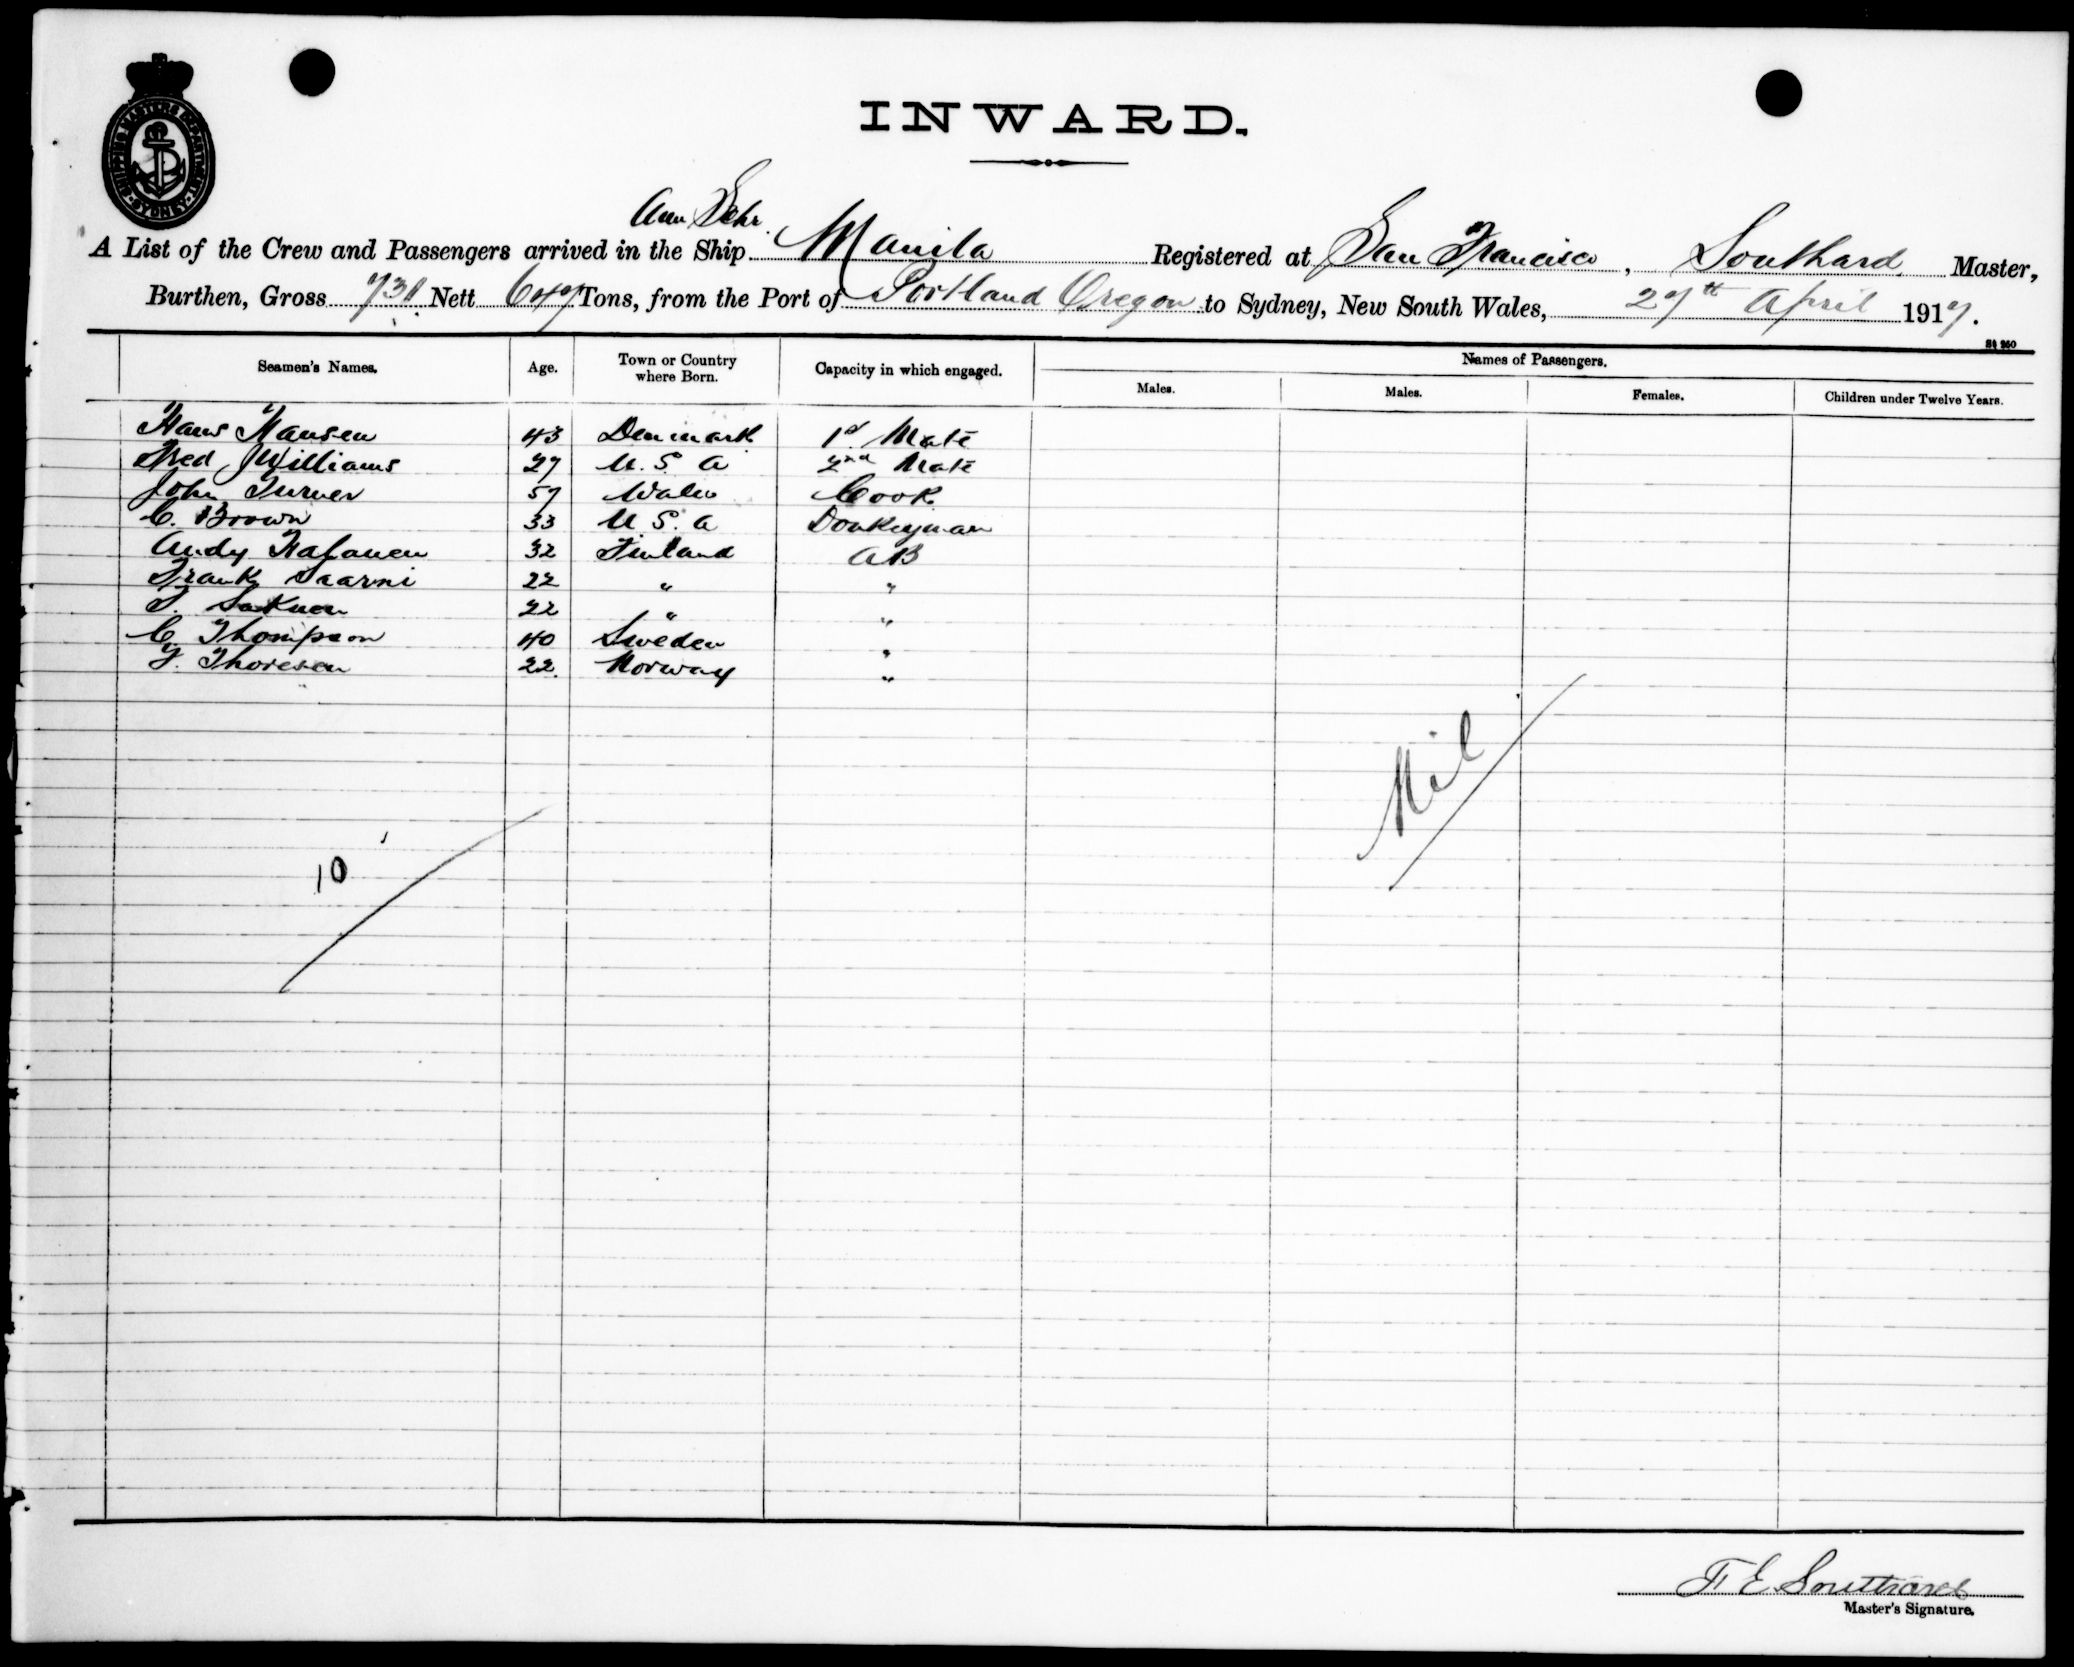 SHIPPING MASTERS DEPARTMENT
SYDNEY
INWARD.
Am Schr.
A List of the Crew and Passengers arrived in the Ship Manila Registered at San Francisco, Southard Master,
Burthen, Gross 731 Nett 647 Tons, from the Port of Portland Oregon to Sydney, New South Wales, 27th April 1917.
Seamen's Names. Age. Town or Country where Born. Capacity in which engaged. Names of Passengers.
Males. Males. Females. Children under Twelve Years.
Hans Hansen 43 Denmark 1st Mate
Fred Williams 27 U. S. A 2nd Mate
John Turner 57 Wales Cook
C. Brown 33 U. S. A Donkeyman
Andy 32 Finland AB
Frank Saarni 22 " "
22 " "
C Thompson 40 Sweden "
Thoresen 22. Norway "
Nil
10
F E Southard
Master's Signature.